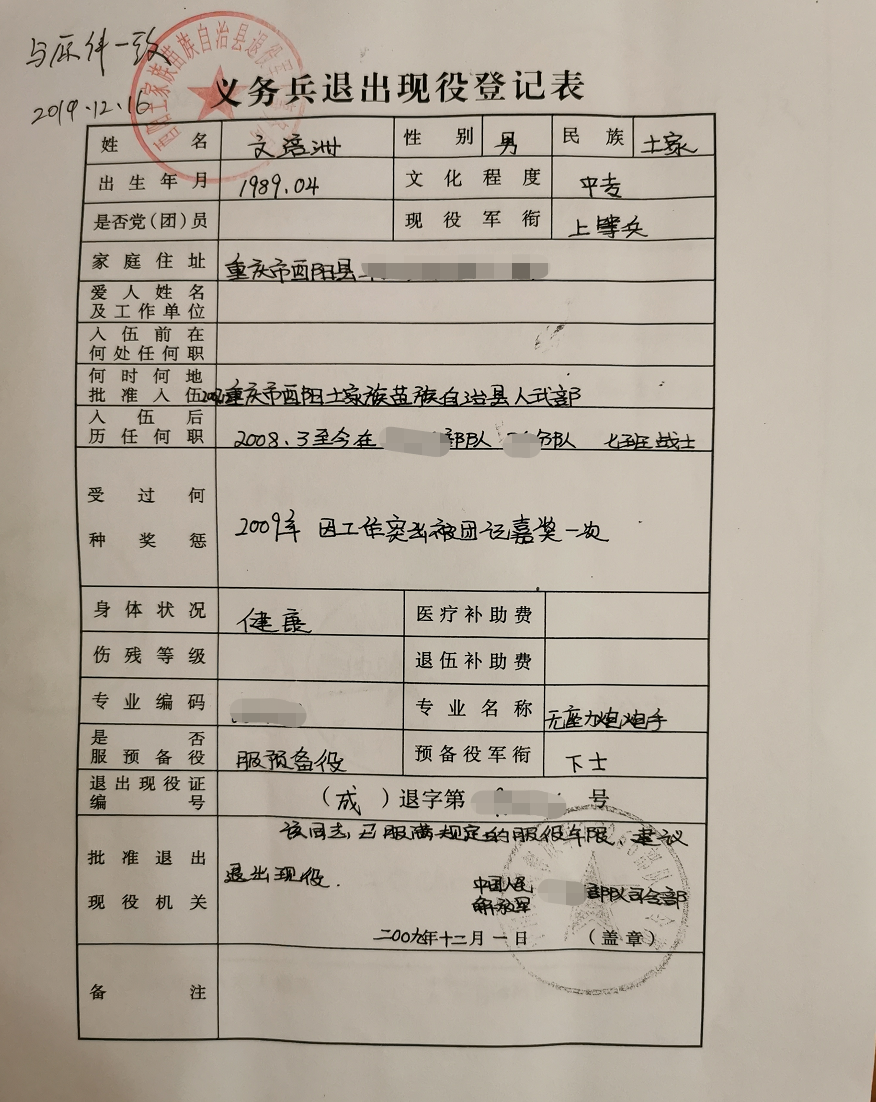 与原件一致
2019.12.16
土家族苗族自治县退役
义务兵退出现役登记表
姓名 文 洲 性别 男 民族 土家
出生年月 1989.04 文化程度 中专
是否党(团)员 现役军衔 上等兵
家庭住址 重庆市酉阳县
爱人姓名
及工作单位
入伍前在
何处任何职
何时何地
批准入伍 重庆市酉阳土家族苗族自治县人武部
入伍后
历任何职 2008.3至今在 部队 分队 七班战士
受过何
种奖惩 2009年因工作突出被团记嘉奖一次
身体状况 健康 医疗补助费
伤残等级 退伍补助费
专业编码 专业名称 无座力炮炮手
是否
服预备役 服预备役 预备役军衔 下士
退出现役证
编号 (成)退字第 号
批准退出
现役机关
该同志已服满规定的服役年限、建议
退出现役.
中国人民
解放军 部队司令部
二00九年十二月一日 (盖章)
备注